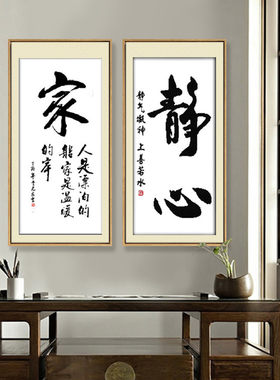 家
人是漂泊的
船家是温暖
的岸
静心
静气凝神 上善若水